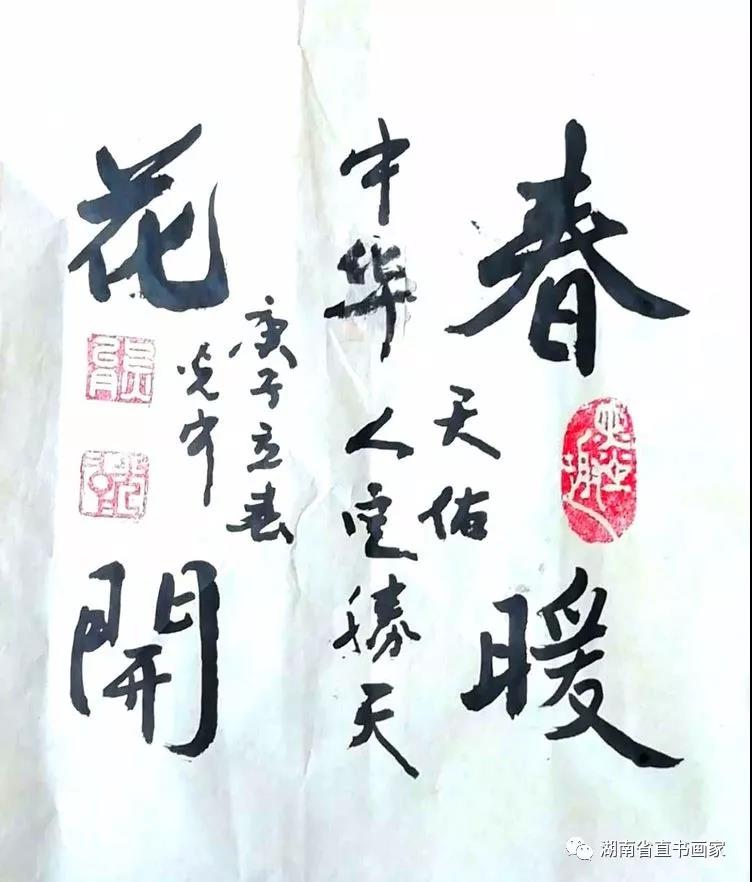 春暖
天佑
中华人定胜天
花開
庚子立春
光中
湖南省直书画家